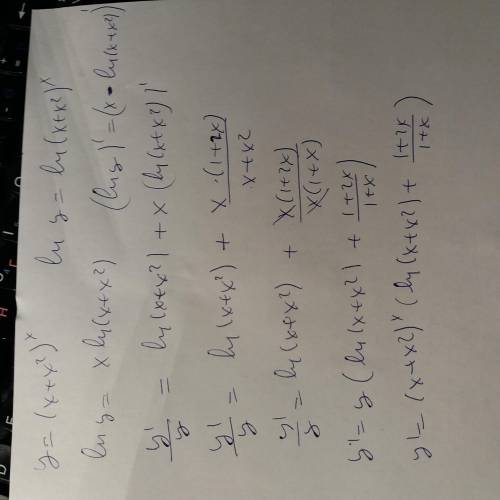 y = (x+x²)^x   ln y = ln(x+x²)^x
ln y = x ln(x+x²)   (ln y)' = (x • ln(x+x²))'
y'/y = ln(x+x²) + x (ln(x+x²))'
y'/y = ln(x+x²) + x·(1+2x)/x+x²
y'/y = ln(x+x²) + x(1+2x)/x(1+x)
y' = y (ln(x+x²) + 1+2x/1+x)
y' = (x+x²)^x (ln(x+x²) + 1+2x/1+x)